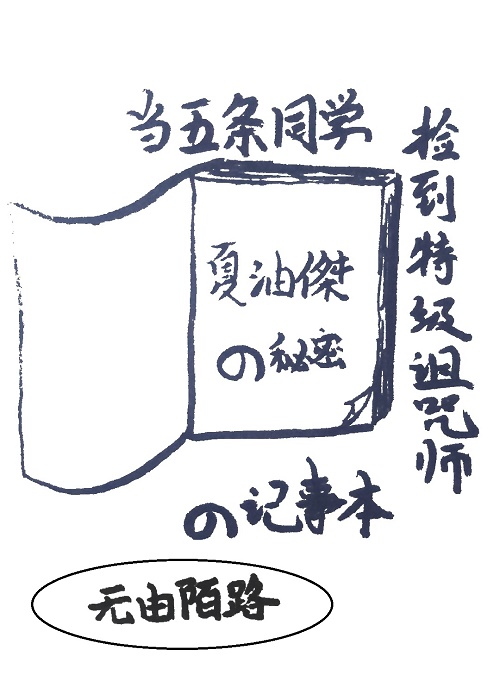 当五条同学
捡到特级诅咒师
夏油傑
の秘密
の记事本
无由陌路